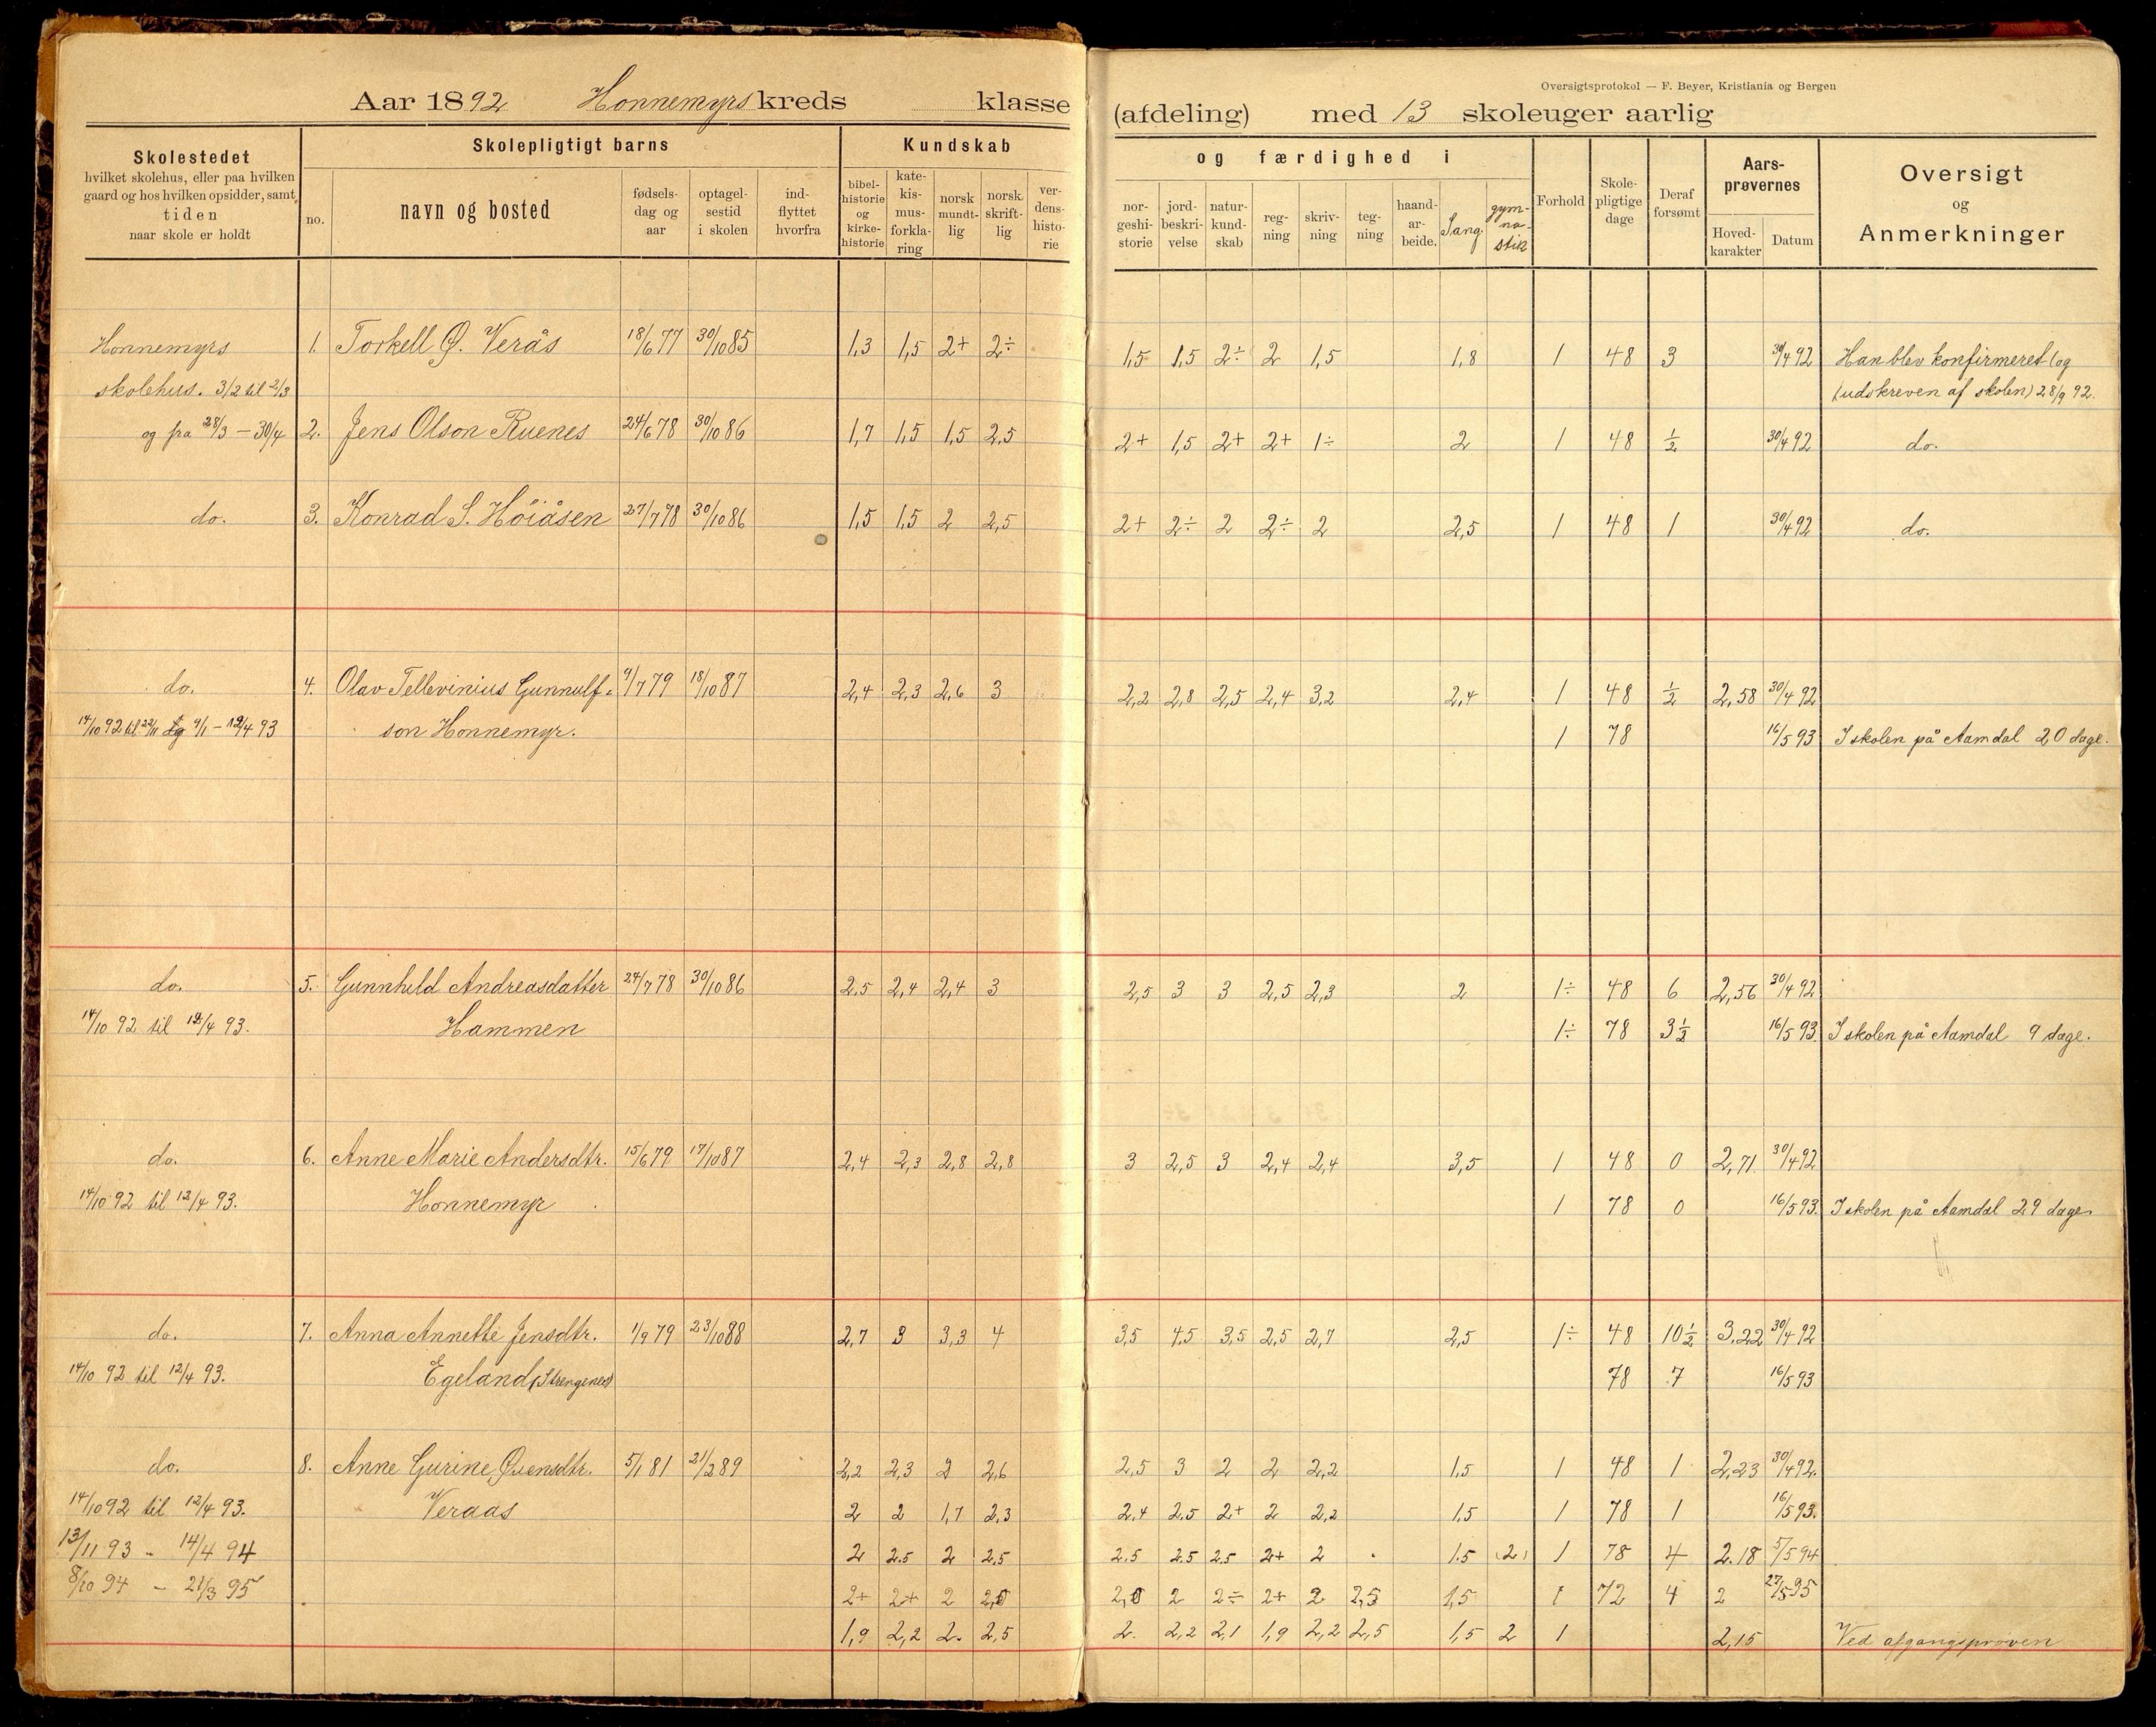 Oversigtsprotokol — F. Beyer, Kristiania og Bergen
Aar 1892 Honnemyrs kreds klasse (afdeling) med 13 skoleuger aarlig
Skolestedet hvilket skolehus, eller paa hvilken gaard og hos hvilken opsidder, samt tiden naar skole er holdt
Skolepligtigt barns
no. navn og bosted fødsels-dag og aar optagel-sestid i skolen ind-flyttet hvorfra
Kundskab og færdighed i
bibel-historie og kirke-historie kate-kis-mus-forkla-ring norsk mundt-lig norsk skrift-lig ver-dens-histo-rie nor-geshi-storie jord-beskri-velse natur-kund-skab reg-ning skriv-ning teg-ning haand-ar-beide. Sang gym-na-stik
Forhold Skole-pligtige dage Deraf forsømt Aars-prøvernes Hoved-karakter Datum Oversigt og Anmerkninger
Honnemyrs 1. Torkell Ø. Verås 18/6 77 30/10 85 1,3 1,5 2+ 2÷ 1,5 1,5 2÷ 2 1,5 1,8 1 48 3 30/4 92 Han blev konfirmeret (og
skolehus. 3/2 til 2/3 (udskreven af skolen) 28/9 92.
og fra 28/3 — 30/4 2. Jens Olson Ruenes 24/6 78 30/10 86 1,7 1,5 1,5 2,5 2+ 1,5 2+ 2+ 1÷ 2 1 48 1/2 30/4 92 do.
do. 3. Konrad S. Höiåsen 27/7 78 30/10 86 1,5 1,5 2 2,5 2+ 2÷ 2 2÷ 2 2,5 1 48 1 30/4 92 do.
do. 4. Olav Tellevinius Gunnulf- 9/7 79 18/10 87 2,4 2,3 2,6 3 2,2 2,8 2,5 2,4 3,2 2,4 1 48 1/2 2,58 30/4 92
14/10 92 til 22/11 og 9/1 — 12/4 93 son Honnemyr. 1 78 16/5 93 I skolen på Aamdal 20 dage.
do. 5. Gunnhild Andreasdatter 24/7 78 30/10 86 2.5 2,4 2,4 3 2,5 3 3 2,5 2,3 2 1÷ 48 6 2,56 30/4 92
14/10 92 til 12/4 93. Hammen 1÷ 78 3 1/2 16/5 93. I skolen på Aamdal 9 dage.
do. 6. Anne Marie Andersdtr. 15/6 79 17/10 87 2,4 2,3 2,8 2,8 3 2,5 3 2,4 2,4 3,5 1 48 0 2,71 30/4 92
14/10 92 til 12/4 93. Honnemyr 1 78 0 16/5 93. I skolen på Aamdal 29 dage
do. 7. Anna Annette Jensdtr. 1/9 79 23/10 88 2,7 3 3,3 4 3,5 4,5 3,5 2,5 2,7 2,5 1÷ 48 10 1/2 3,22 30/4 92
14/10 92 til 12/4 93. Egeland (Strengenes) 78 7 16/5 93
do. 8. Anne Gurine Øvensdtr. 5/1 81 21/2 89 2,2 2,3 2 2,6 2,5 3 2 2 2,2 1,5 1 48 1 2,23 30/4 92.
14/10 92 til 12/4 93. Veraas 2 2 1,7 2,3 2,4 2,5 2+ 2 2,2 1,5 1 78 1 16/5 93.
13/11 93 - 14/4 94 2 2.5 2 2,5 2.5 2.5 2.5 2+ 2 1.5 (2) 1 78 4 2.18 5/5 94
8/10 94 - 21/3 95 2+ 2+ 2 2,0 2 2÷ 2+ 2 2,5 1,5 1 72 4 2 27/5 95
1,9 2,2 2. 2,5 2. 2,2 2,1 1,9 2,2 2,5 1,5 2 1 2,15 Ved afgangsprøven